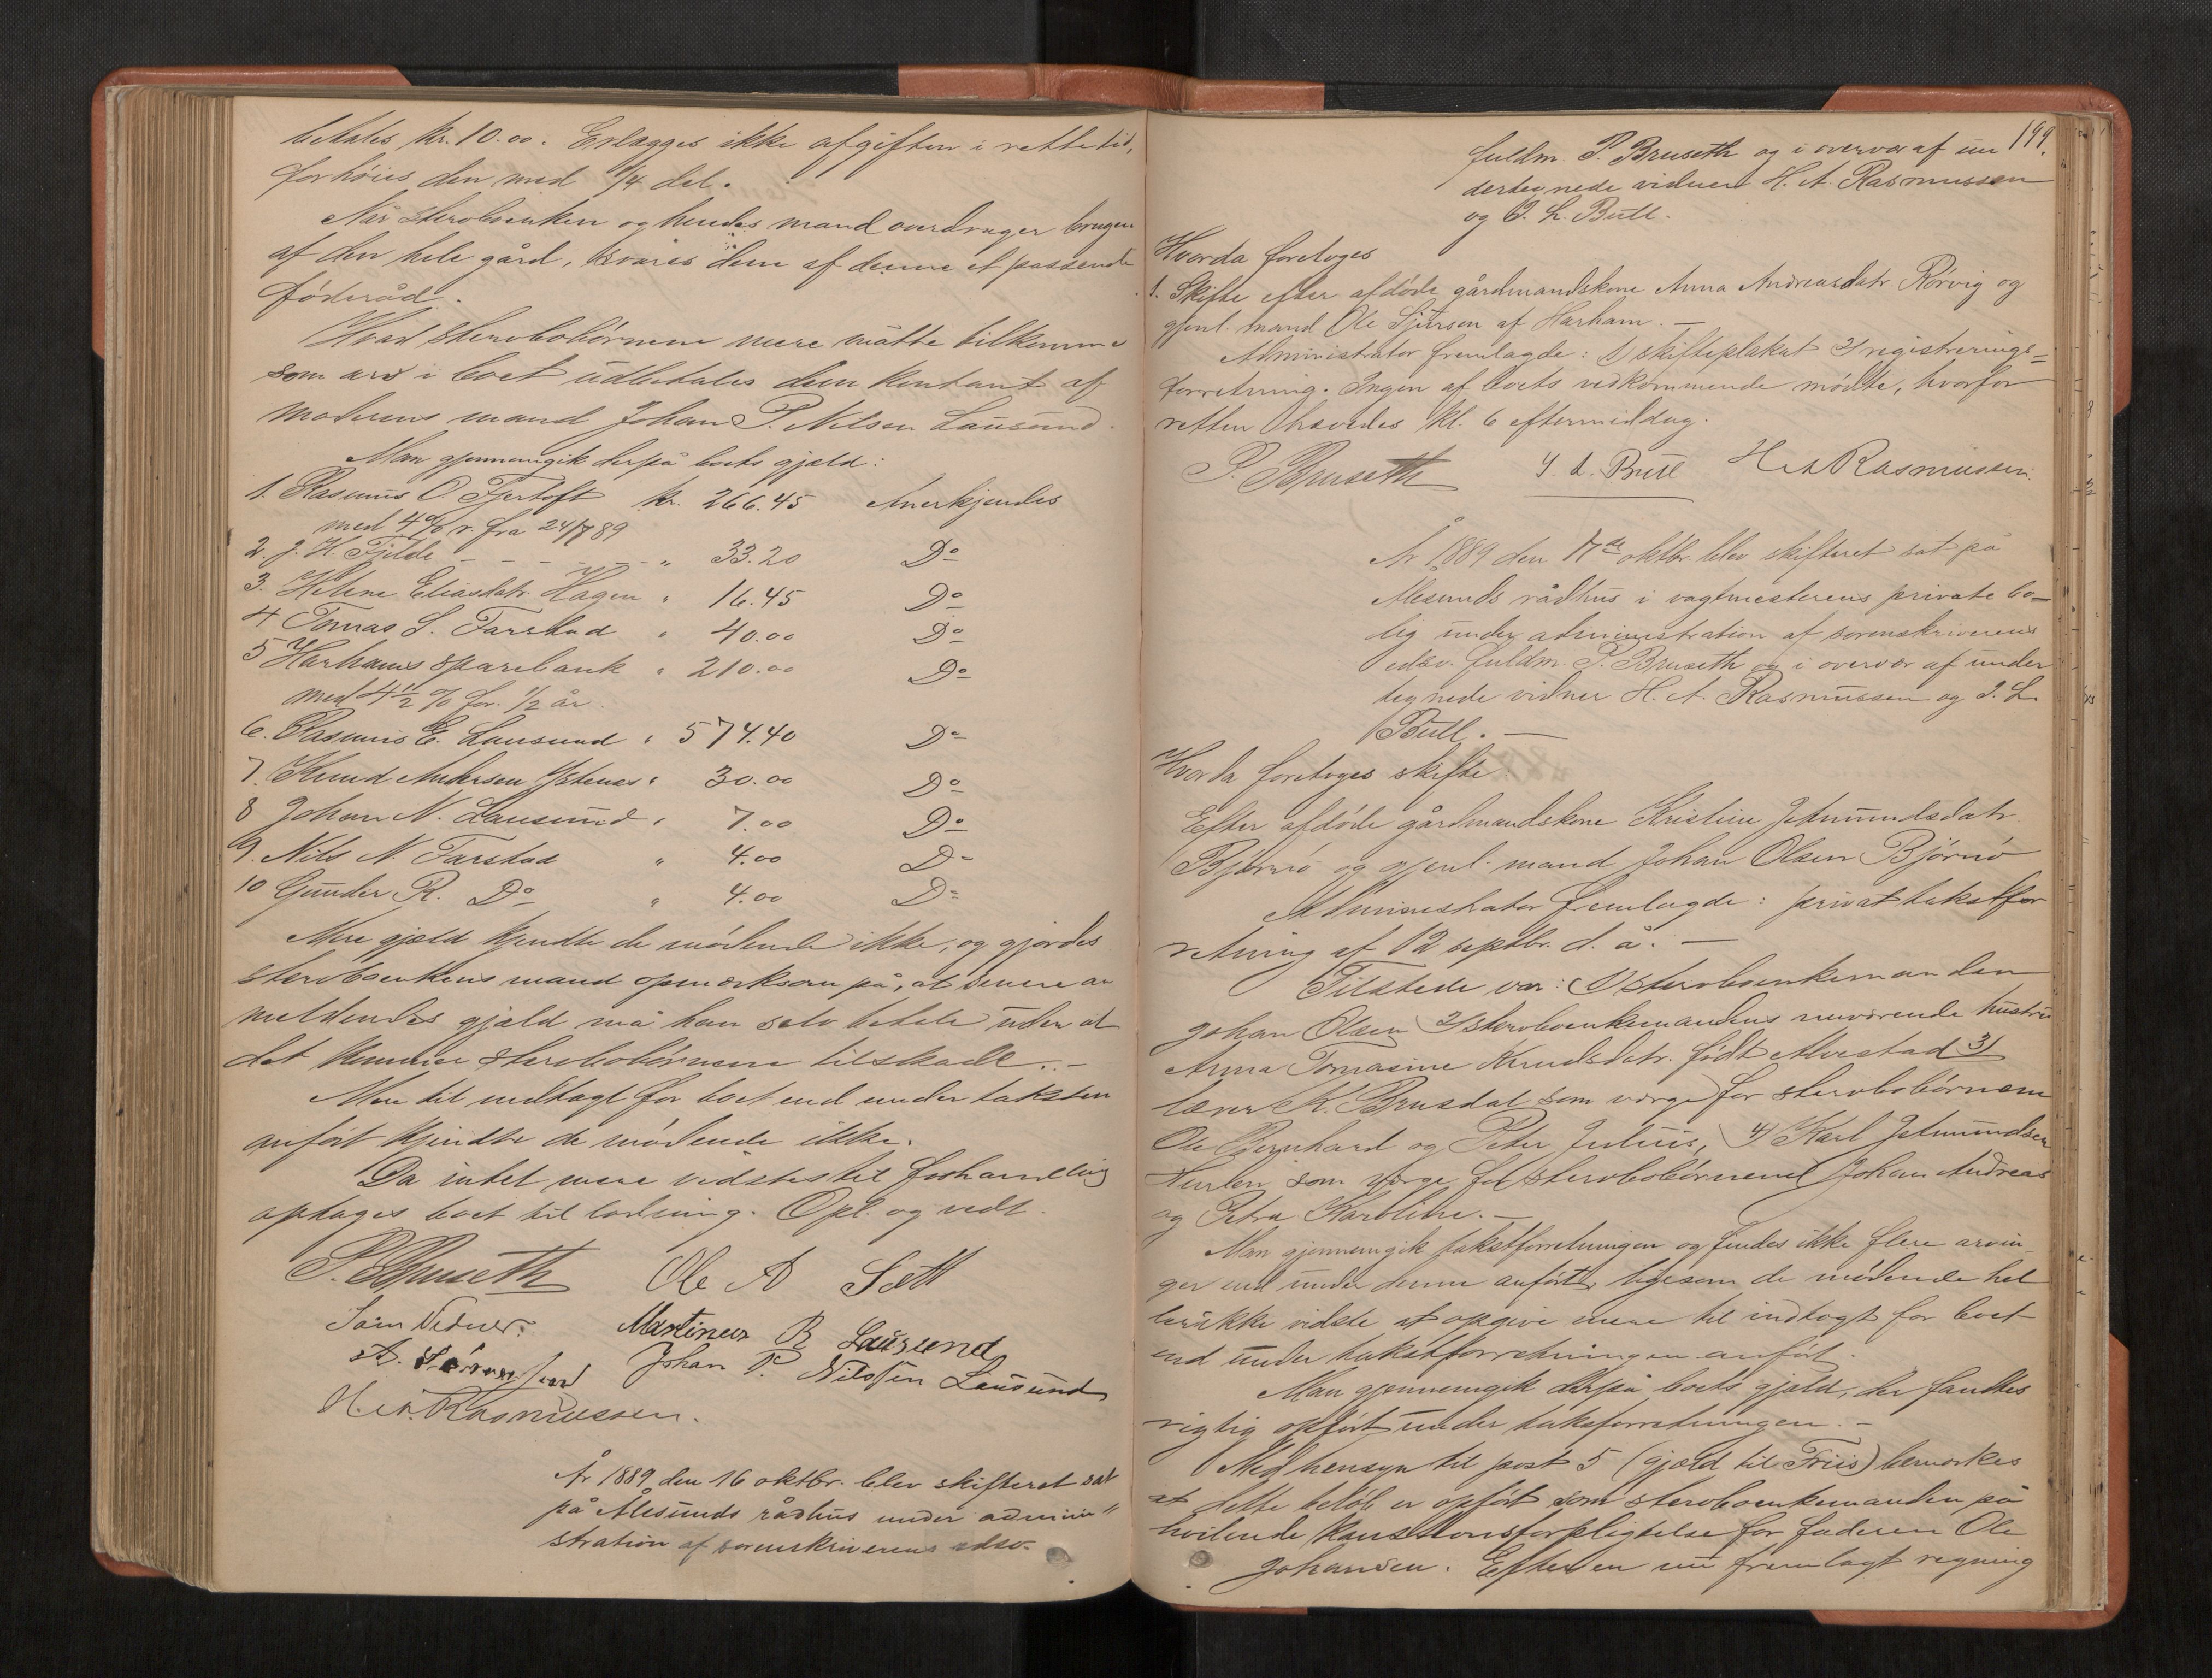 betales kr. 10.00. Erlægges ikke afgiften i rette tid,
forhøies den med 1/4 del.
Når sterboenken og hendes mand overdrager brugen
af den hele gård, svares dem af denne et passende
føderåd.
Hvad sterbobørnene mere måtte tilkomme
som arv i boet udbetales dem kontant af
moderens mand Johan P. Nilsen Lausund.
Man gjennemgik derpå boets gjæld:
1. Rasmus O. Fjertoft kr. 266.45 Anerkjendes
med 4 % r. fra 24/7 89
2. J. H. Fjelde - - - - - - „ 33.20 Do
3. Helene Eliasdatr. Hagen „ 16.45 Do
4 Tomas S. Farstad „ 40.00 Do
5 Harhams sparebank „ 210.00 Do
med 4 1/2 % for 1/2 år.
6. Rasmus E. Lausund „ 574.40 Do
7. Knud Andersen Ystenes „ 30.00 Do
8 Johan N. Lausund „ 7.00 Do
9. Nils N. Farstad „ 4.00 Do
10 Gunder R. Do „ 4.00 Do
Mere gjæld kjendte de mødende ikke, og gjordes
sterboenkens mand opmærksom på, at senere an
meldendes gjæld må han selv betale uden at
det kommer sterbobørnene tilskade. -
Mere til indtægt for boet end under taksten
anført kjendte de mødende ikke.
Da intet mere vidstes til forhandling
optages boet til lodning. Opl. og vedt.
P. Bruseth Ole A Sætt
Som Vidner: Martinus R Lausund
A. Johan P. Nilssen Lausund
H. A. Rasmussen.
År 1889 den 16 oktbr. blev skifteret sat
på Ålesunds rådhus under admini„
stration af sorenskriverens edsv.
199.
fuldm. P. Bruseth og i overvær af un
dertegnede vidner H. A. Rasmussen
og J. L. Bull.
Hvorda foretoges
1. Skifte efter afdøde gårdmandskone Anna Andreasdatr. Rørvig og
gjenl. mand Ole Sjursen af Harham. -
Administrator fremlagde: 1) skifteplakat 2) registrerings=
forretning. Ingen af boets vedkommende mødte, hvorfor
retten hævedes kl. 6 eftermiddag.
P. Bruseth J. L. Bull H A Rasmussen.
År 1889 den 17de oktbr. blev skifteret sat på
Ålesunds rådhus i vagtmesterens private bo-
lig under administration af sorenskriverens
edsv. fuldm. P. Bruseth og i overvær af under
tegnede vidner H. A. Rasmussen og J. L.
Bull. -
Hvorda foretoges skifte:
Efter afdøde gårdmandskone Kristine Jetmundsdatr.
Bjørnø og gjenl. mand Johan Olsen Bjørnø
Administrator fremlagde: privat takstfor
retning af 12 septbr. d. å. -
Tilstede var: 1) Sterboenkemanden
Johan Olsen 2) sterboenkemandens nuværende hustru
Anna Tomasine Knudsdatr. født Alvestad 3)
lærer K. Brusdal som værge for sterbobørnene
Ole Bernhard og Peter Julius, 4) Karl Jetmundsen
som værge for sterbobørnene Johan Andreas
og Petra Karoline. -
Man gjennemgik takstforretningen og findes ikke flere arvin
ger end under denne anført, ligesom de mødende hel
ler ikke vidste at opgive mere til indtægt for boet
end under takstforretningen anført.
Man gjennemgik derpå boets gjæld, der fandtes
rigtig opført under takstforretningen. -
Med hensyn til post 5 (gjæld til Friis) bemærkes
at dette beløb er opført som sterboenkemanden på
hvilende kautionsforpligtelse for faderen Ole
Johansen. Efter en nu fremlagt regning